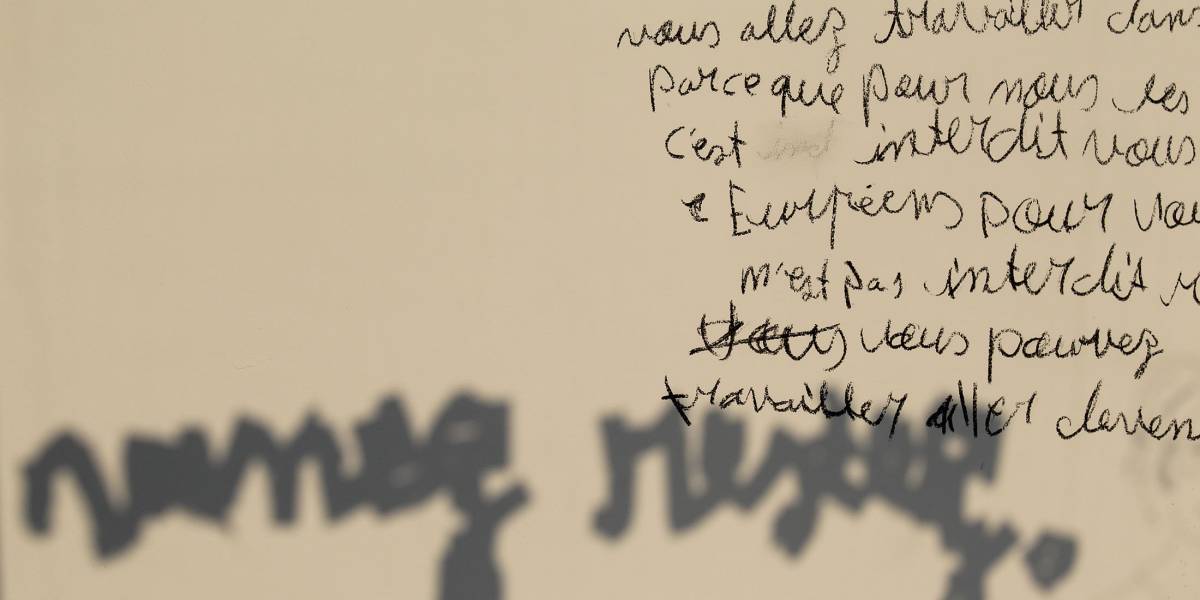 vous allez travailler dans
parce que pour nous les
c'est interdit vous
Européens pour vou
n'est pas interdit
vous pouvez
travailler aller deven
venez rester.